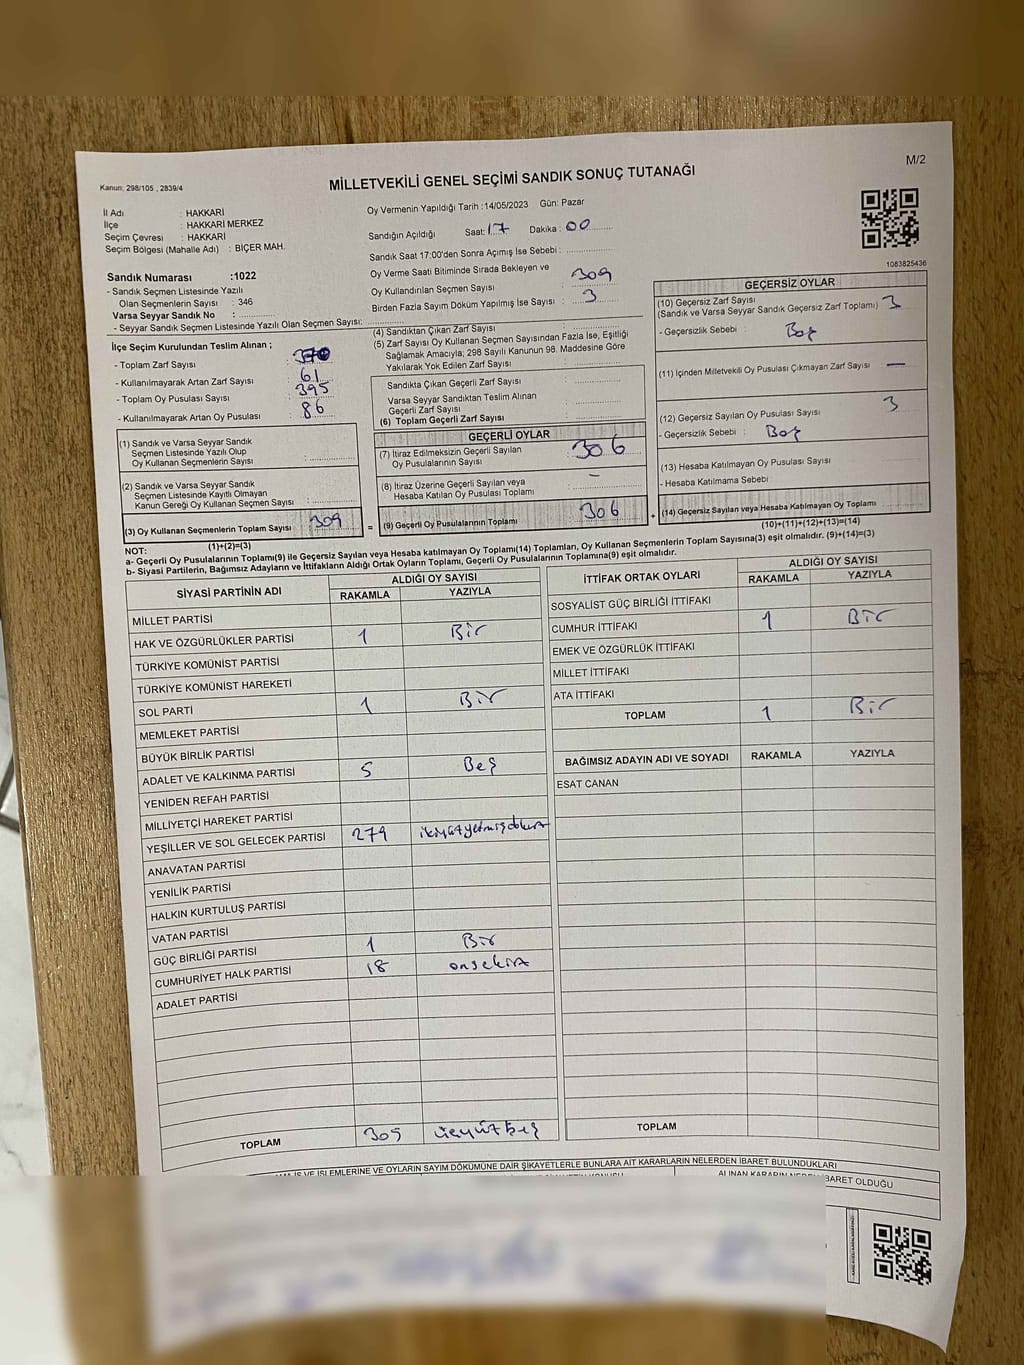 M/2
Kanun; 298/105 , 2839/4
MİLLETVEKİLİ GENEL SEÇİMİ SANDIK SONUÇ TUTANAĞI
İl Adı : HAKKARİ
İlçe : HAKKARİ MERKEZ
Seçim Çevresi : HAKKARİ
Seçim Bölgesi (Mahalle Adı) : BİÇER MAH.
Sandık Numarası :1022
- Sandık Seçmen Listesinde Yazılı
Olan Seçmenlerin Sayısı : 346
Varsa Seyyar Sandık No :
- Seyyar Sandık Seçmen Listesinde Yazılı Olan Seçmen Sayısı:
Oy Vermenin Yapıldığı Tarih :14/05/2023 Gün: Pazar
Sandığın Açıldığı Saat: 17 Dakika : 00
Sandık Saat 17:00'den Sonra Açımış İse Sebebi :
Oy Verme Saati Bitiminde Sırada Bekleyen ve
Oy Kullandırılan Seçmen Sayısı : 309
Birden Fazla Sayım Döküm Yapılmış İse Sayısı : 3
1083825436
İlçe Seçim Kurulundan Teslim Alınan ;
- Toplam Zarf Sayısı : 370
- Kullanılmayarak Artan Zarf Sayısı : 61
- Toplam Oy Pusulası Sayısı : 395
- Kullanılmayarak Artan Oy Pusulası : 86
(1) Sandık ve Varsa Seyyar Sandık
Seçmen Listesinde Yazılı Olup
Oy Kullanan Seçmenlerin Sayısı :
(2) Sandık ve Varsa Seyyar Sandık
Seçmen Listesinde Kayıtlı Olmayan
Kanun Gereği Oy Kullanan Seçmen Sayısı :
(3) Oy Kullanan Seçmenlerin Toplam Sayısı 309
(1)+(2)=(3)
(4) Sandıktan Çıkan Zarf Sayısı :
(5) Zarf Sayısı Oy Kullanan Seçmen Sayısından Fazla İse, Eşitliği
Sağlamak Amacıyla; 298 Sayılı Kanunun 98. Maddesine Göre
Yakılarak Yok Edilen Zarf Sayısı :
Sandıkta Çıkan Geçerli Zarf Sayısı :
Varsa Seyyar Sandıktan Teslim Alınan
Geçerli Zarf Sayısı :
(6) Toplam Geçerli Zarf Sayısı :
GEÇERLİ OYLAR
(7) İtiraz Edilmeksizin Geçerli Sayılan
Oy Pusulalarının Sayısı : 306
(8) İtiraz Üzerine Geçerli Sayılan veya
Hesaba Katılan Oy Pusulası Toplamı : –
= (9) Geçerli Oy Pusulalarının Toplamı : 306
GEÇERSİZ OYLAR
(10) Geçersiz Zarf Sayısı
(Sandık ve Varsa Seyyar Sandık Geçersiz Zarf Toplamı) : 3
- Geçersizlik Sebebi : Boş
(11) İçinden Milletvekili Oy Pusulası Çıkmayan Zarf Sayısı : —
(12) Geçersiz Sayılan Oy Pusulası Sayısı : 3
- Geçersizlik Sebebi : Boş
(13) Hesaba Katılmayan Oy Pusulası Sayısı :
- Hesaba Katılmama Sebebi :
+ (14) Geçersiz Sayılan veya Hesaba Katılmayan Oy Toplamı :
(10)+(11)+(12)+(13)=(14)
NOT:
a- Geçerli Oy Pusulalarının Toplamı(9) ile Geçersiz Sayılan veya Hesaba katılmayan Oy Toplamı(14) Toplamları, Oy Kullanan Seçmenlerin Toplam Sayısına(3) eşit olmalıdır. (9)+(14)=(3)
b- Siyasi Partilerin, Bağımsız Adayların ve İttifakların Aldığı Ortak Oyların Toplamı, Geçerli Oy Pusulalarının Toplamına(9) eşit olmalıdır.
SİYASİ PARTİNİN ADI ALDIĞI OY SAYISI
RAKAMLA YAZIYLA
MİLLET PARTİSİ
HAK VE ÖZGÜRLÜKLER PARTİSİ 1 Bir
TÜRKİYE KOMÜNİST PARTİSİ
TÜRKİYE KOMÜNİST HAREKETİ
SOL PARTİ 1 Bir
MEMLEKET PARTİSİ
BÜYÜK BİRLİK PARTİSİ
ADALET VE KALKINMA PARTİSİ 5 Beş
YENİDEN REFAH PARTİSİ
MİLLİYETÇİ HAREKET PARTİSİ
YEŞİLLER VE SOL GELECEK PARTİSİ 279 ikiyüzyetmişdokuz
ANAVATAN PARTİSİ
YENİLİK PARTİSİ
HALKIN KURTULUŞ PARTİSİ
VATAN PARTİSİ
GÜÇ BİRLİĞİ PARTİSİ 1 Bir
CUMHURİYET HALK PARTİSİ 18 onsekiz
ADALET PARTİSİ
TOPLAM 305 üçyüzbeş
İTTİFAK ORTAK OYLARI ALDIĞI OY SAYISI
RAKAMLA YAZIYLA
SOSYALİST GÜÇ BİRLİĞİ İTTİFAKI
CUMHUR İTTİFAKI 1 Bir
EMEK VE ÖZGÜRLÜK İTTİFAKI
MİLLET İTTİFAKI
ATA İTTİFAKI
TOPLAM 1 Bir
BAĞIMSIZ ADAYIN ADI VE SOYADI RAKAMLA YAZIYLA
ESAT CANAN
TOPLAM
İŞ VE İŞLEMLERİNE VE OYLARIN SAYIM DÖKÜMÜNE DAİR ŞİKAYETLERLE BUNLARA AİT KARARLARIN NELERDEN İBARET BULUNDUKLARI
ALINAN KARARIN NEDEN İBARET OLDUĞU